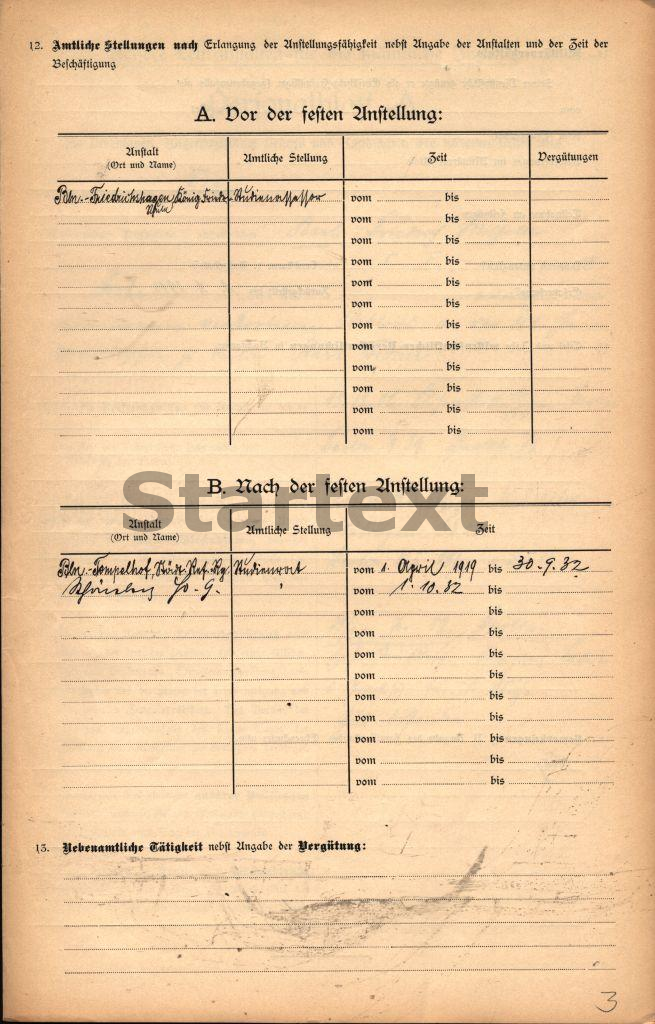 12. Amtliche Stellungen nach Erlangung der Anstellungsfähigkeit nebst Angabe der Anstalten und der Zeit der
Beschäftigung
A. Vor der festen Anstellung:
Anstalt
(Ort und Name)
Amtliche Stellung
Zeit
Vergütungen
Bln.-Friedrichshagen, König. Friedr.- Studienassessor vom bis
Schule
vom bis
vom bis
vom bis
vom bis
vom bis
vom bis
vom bis
vom bis
vom bis
vom bis
vom bis
B. Nach der festen Anstellung:
Startext
Anstalt
(Ort und Name)
Amtliche Stellung
Zeit
Bln.-Tempelhof, Städt. Ref. Rg. Studienrat vom 1. April 1919 bis 30.9.32
Schöneberg G. " vom 1.10.32 bis
vom bis
vom bis
vom bis
vom bis
vom bis
vom bis
vom bis
vom bis
vom bis
13. Nebenamtliche Tätigkeit nebst Angabe der Vergütung:
3